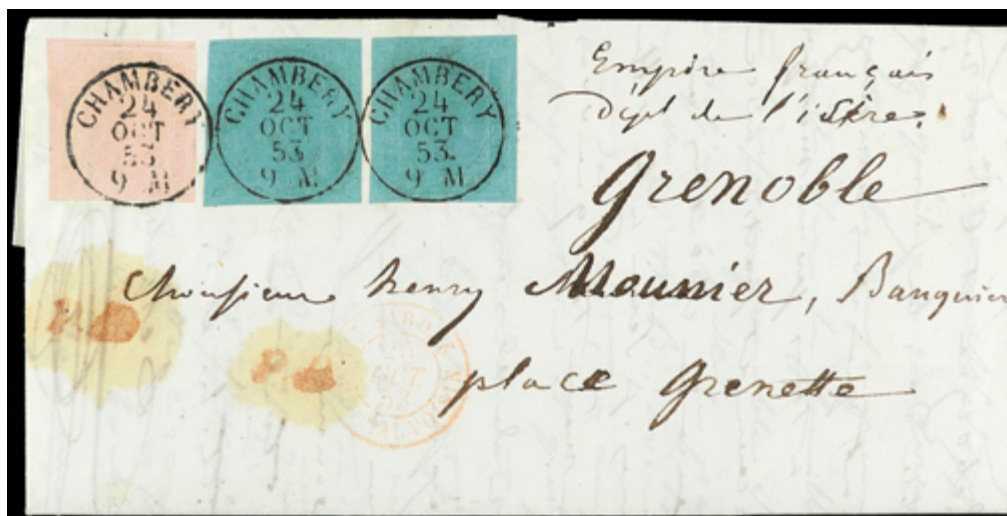 CHAMBERY
24
OCT
53
9 M
CHAMBERY
24
OCT
53
9 M
CHAMBERY
24
OCT
53.
9 M
Empire français
Dépt de l'isère.
Grenoble
Monsieur henry Mounier, Banquier
P.D
P.D
OCT
53
place Grenette